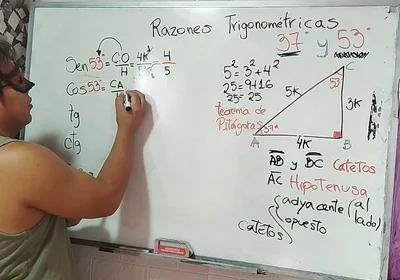 Razones Trigonométricas
37° y 53°
Sen 53° = C.O/H = 4K/5K = 4/5
Cos 53° = CA/
tg
ctg
5² = 3² + 4²
25 = 9+16
25 = 25
teorema de
Pitágoras
C
53°
5K
3K
37°
A
4K
B
AB y BC Catetos
AC Hipotenusa
Catetos { adyacente (al lado)
opuesto